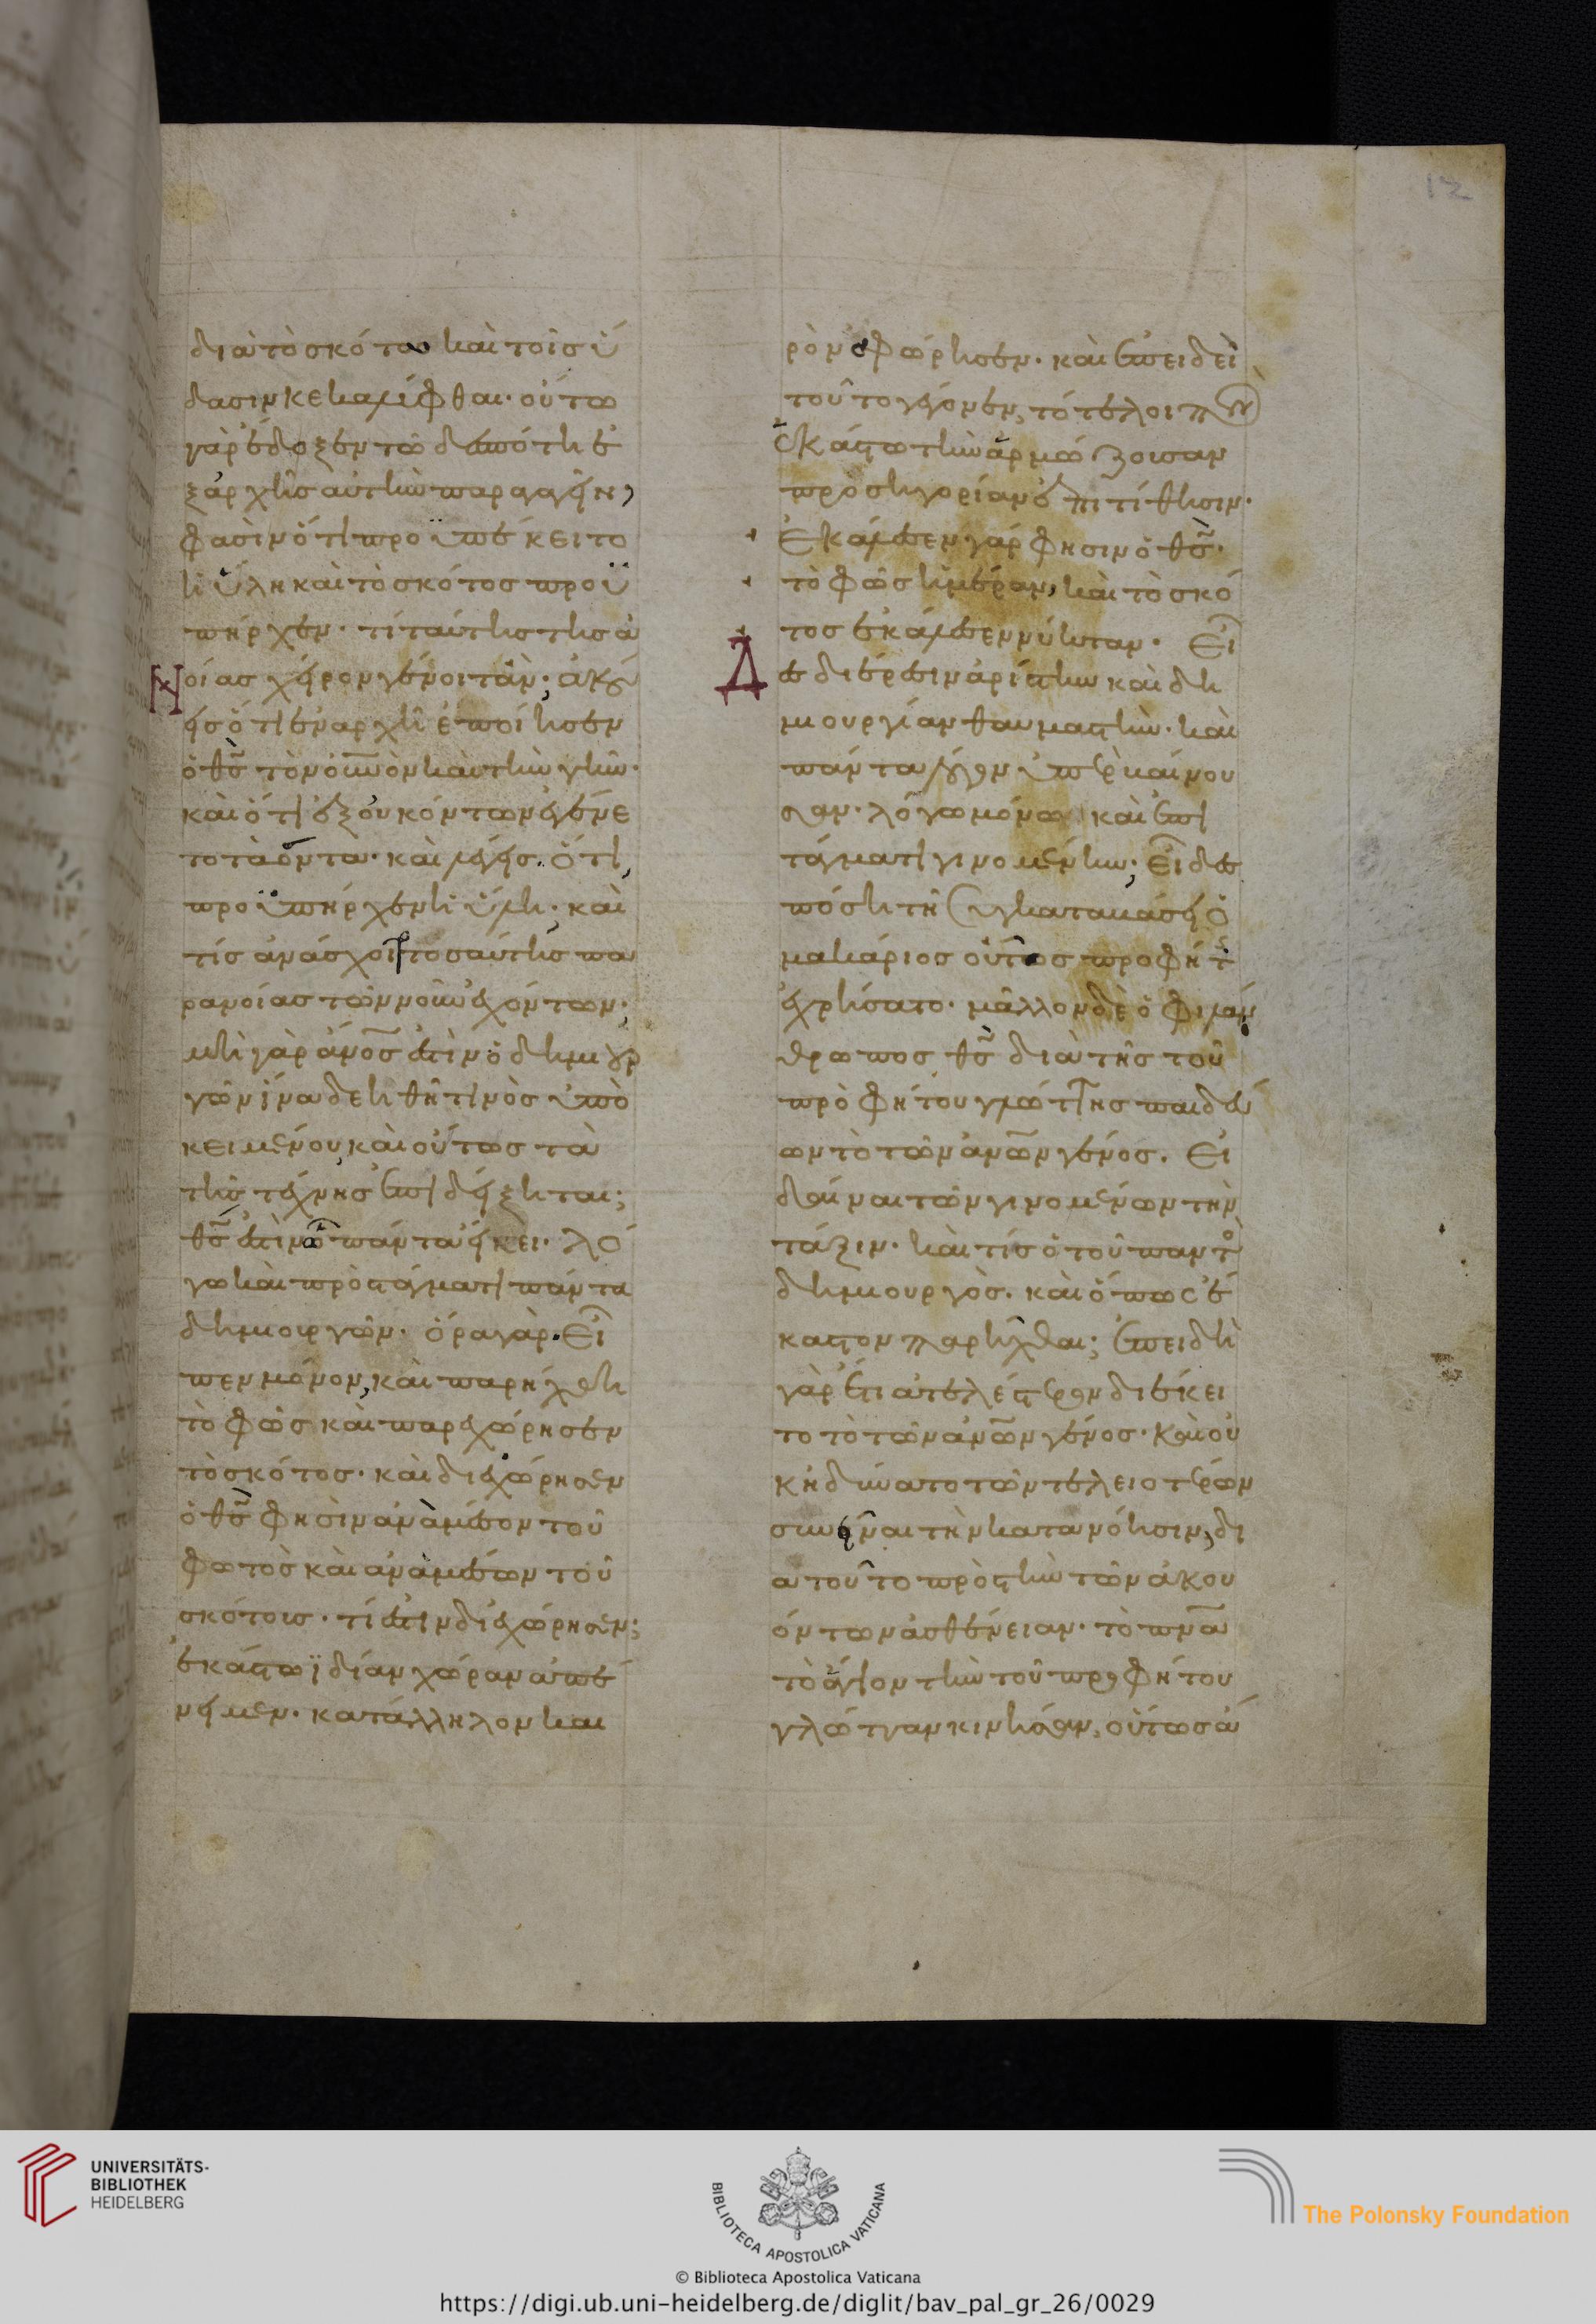 12
διὰ τὸ σκότοσ καὶ τοῖσ ὕ
δασιν κεκαλύφθαι· οὕτω
γὰρ ἔδοξεν τῶ δεσπότη ἐ
ξαρχῆσ αὐτὴν παραγαγεῖν,
φασὶν ὅτι προϋπέκειτο
ἡ ὕλη καὶ τὸ σκότοσ προϋ
πῆρχεν· τί ταύτησ τῆσ ἀ
νοίασ χεῖρον γένοιτ' ἄν; ἀκού
εισ ὅτι ἐν ἀρχῆ ἐποίησεν
ὁ θσ τὸν οὐνὸν καὶ τὴν γῆν·
καὶ ὅτι ἐξ οὐκ όντων ἐγένε
το τὰ ὄντα· καὶ λέγεισ ὅτι
προϋπῆρχεν ἡ ὕλη; καὶ
τίσ ἀνάσχοιτο τοσαύτησ πα
ρανοίασ τῶν νοῦν ἐχόντων;
μὴ γὰρ ἄνοσ ἐστὶν ὁ δημιουρ
γῶν ἵνα δεηθῆ τινὸσ ὑπο
κειμένου καὶ οὕτωσ τὰ
τῆσ τέχνησ ἐπιδείξηται;
θσ ἐστὶν ὧ πάντα εἴκει· λό
γω καὶ προστάγματι πάντα
δημιουργῶν· ὅρα γὰρ· Εἶ
πεν μόνον, καὶ παρήχθη
τὸ φῶσ καὶ παρεχώρησεν
τὸ σκότοσ· καὶ διεχώρησεν
ὁ θσ φησὶν ἀναμέσον τοῦ
φωτὸσ καὶ ἀναμέσον τοῦ
σκότουσ· τί ἐστιν διεχώρησεν;
ἑκάστω ϊδίαν χώραν ἀπέ
νειμεν· κατάλληλον και
ρὸν ἀφώρησεν· καὶ ἐπειδεὶ
τοῦτο γέγονεν, τότε λοιπὸν
ἑκάστω τὴν ἁρμόζουσαν
προσηγορίαν ἐπιτίθησιν·
Ἐκάλεσεν γάρ φησιν ὁ θσ·
τὸ φῶσ ἡμέραν, καὶ τὸ σκό
τοσ ἐκάλεσεν νύκταν· Εἶ
δεσ διαίρεσιν ἀρίστην καὶ δη
μιουργίαν θαυμαστὴν· καὶ
πάντα λόγον ὑπερβαίνου
σαν· λόγω μόνω καὶ ἐπι
τάγματι γινομένην; Εἶδεσ
πόση τῆ συγκαταβάσει ὁ
μακάριοσ οὗτοσ προφήτησ
ἐχρήσατο· μᾶλλον δὲ ὁ φιλάν
θρωποσ θσ διὰ τῆσ τοῦ
προφήτου γλώττησ παιδεύ
ων τὸ τῶν ἀνων γένοσ· Εἰ
δέναι τῶν γινομένων τὴν
τάξιν· καὶ τίσ ὁ τοῦ παντὸσ
δημιουργόσ· καὶ ὅπωσ ἕ
καστον παρήχθαι; ἐπειδὴ
γὰρ ἔτι ἀτελέστερον διέκει
το τὸ τῶν ἀνων γένοσ· καὶ οὐ
κ ἠδύνατο τῶν τελειοτέρων
συνεῖναι τὴν κατανόησιν, δι
ατοῦτο πρὸσ τὴν τῶν ἀκου
όντων ἀσθένειαν· τὸ πνα
τὸ ἅγιον τὴν τοῦ προφήτου
γλώτταν κινῆσαν, οὕτωσ ἅ
UNIVERSITÄTS-
BIBLIOTHEK
HEIDELBERG
BIBLIOTECA APOSTOLICA VATICANA
The Polonsky Foundation
© Biblioteca Apostolica Vaticana
https://digi.ub.uni-heidelberg.de/diglit/bav_pal_gr_26/0029